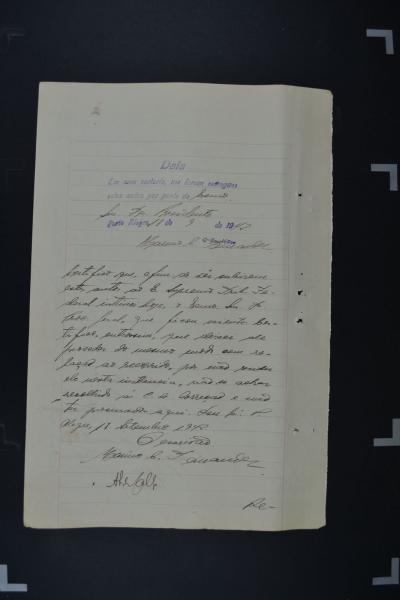 Data
Em meu cartorio, me foram entregues
estes autos por parte do Exmo
Sr. Dr. Presidente
Porto Alegre, 18 de 9 de 1942
O Escrivão
Certifico que, afim de
estes autos, ao E. Supremo Trib. Fe-
deral, intimei hoje, o Exmo Sr. Dr.
Proc. Geral, que ficou sciente. Cer-
tifico, outrosim, que deixei de
proceder do mesmo modo com re-
lação ao recorrido, por não
elle nesta instancia, não se achar
recolhido á C. de Correção e não
ter procurador aqui. Dou fé. P.
Alegre, 18 Setembro 1942.
O escrivão
Fernandez
Re-